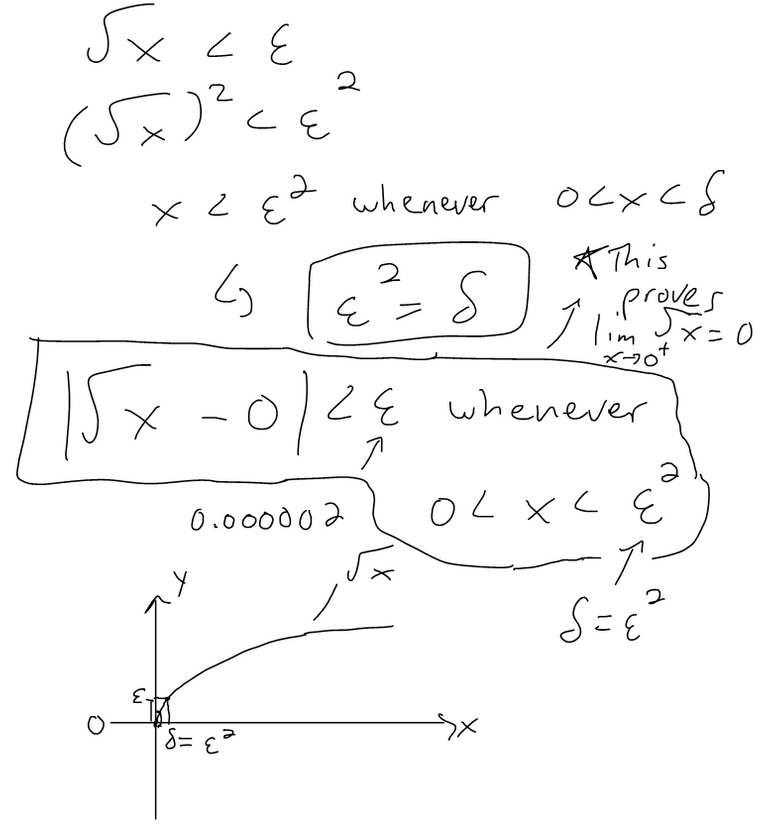 √x < ε
(√x)² < ε²
x < ε² whenever 0<x<δ
↳ ε² = δ
★This
proves
lim √x = 0
x→0⁺
|√x - 0| < ε whenever
0 < x < ε²
0.000002
δ = ε²
y
√x
ε
0
x
δ= ε²